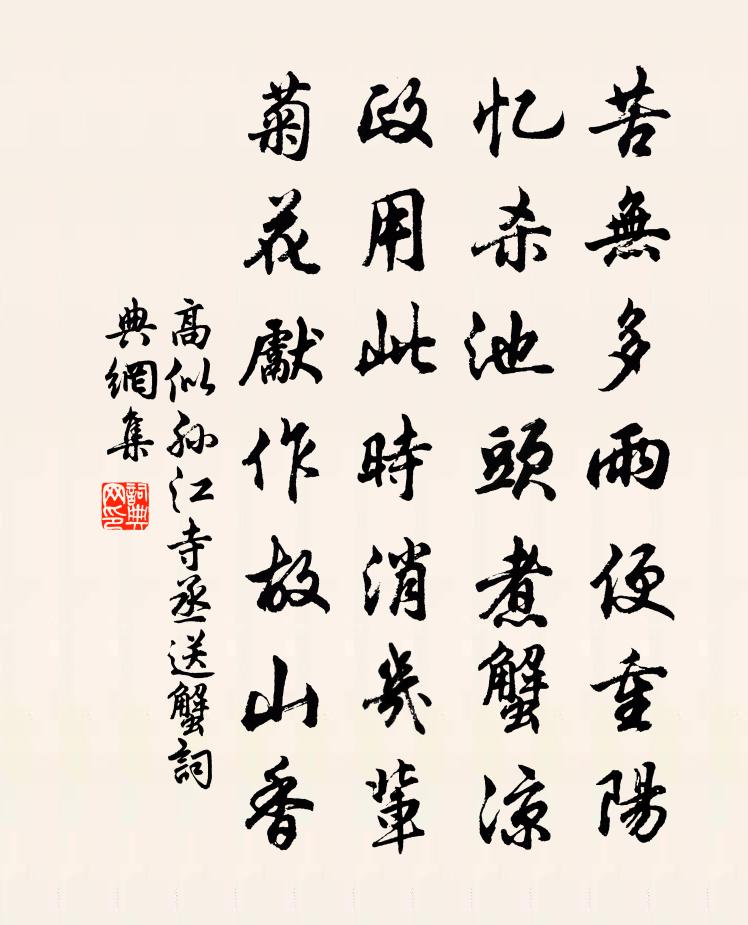 苦無多雨便重陽
忆杀池頭煮蟹凉
政用此時消幾輩
菊花獻作故山香
高似孙江寺丞送蟹詞
典網集
詞典
网印